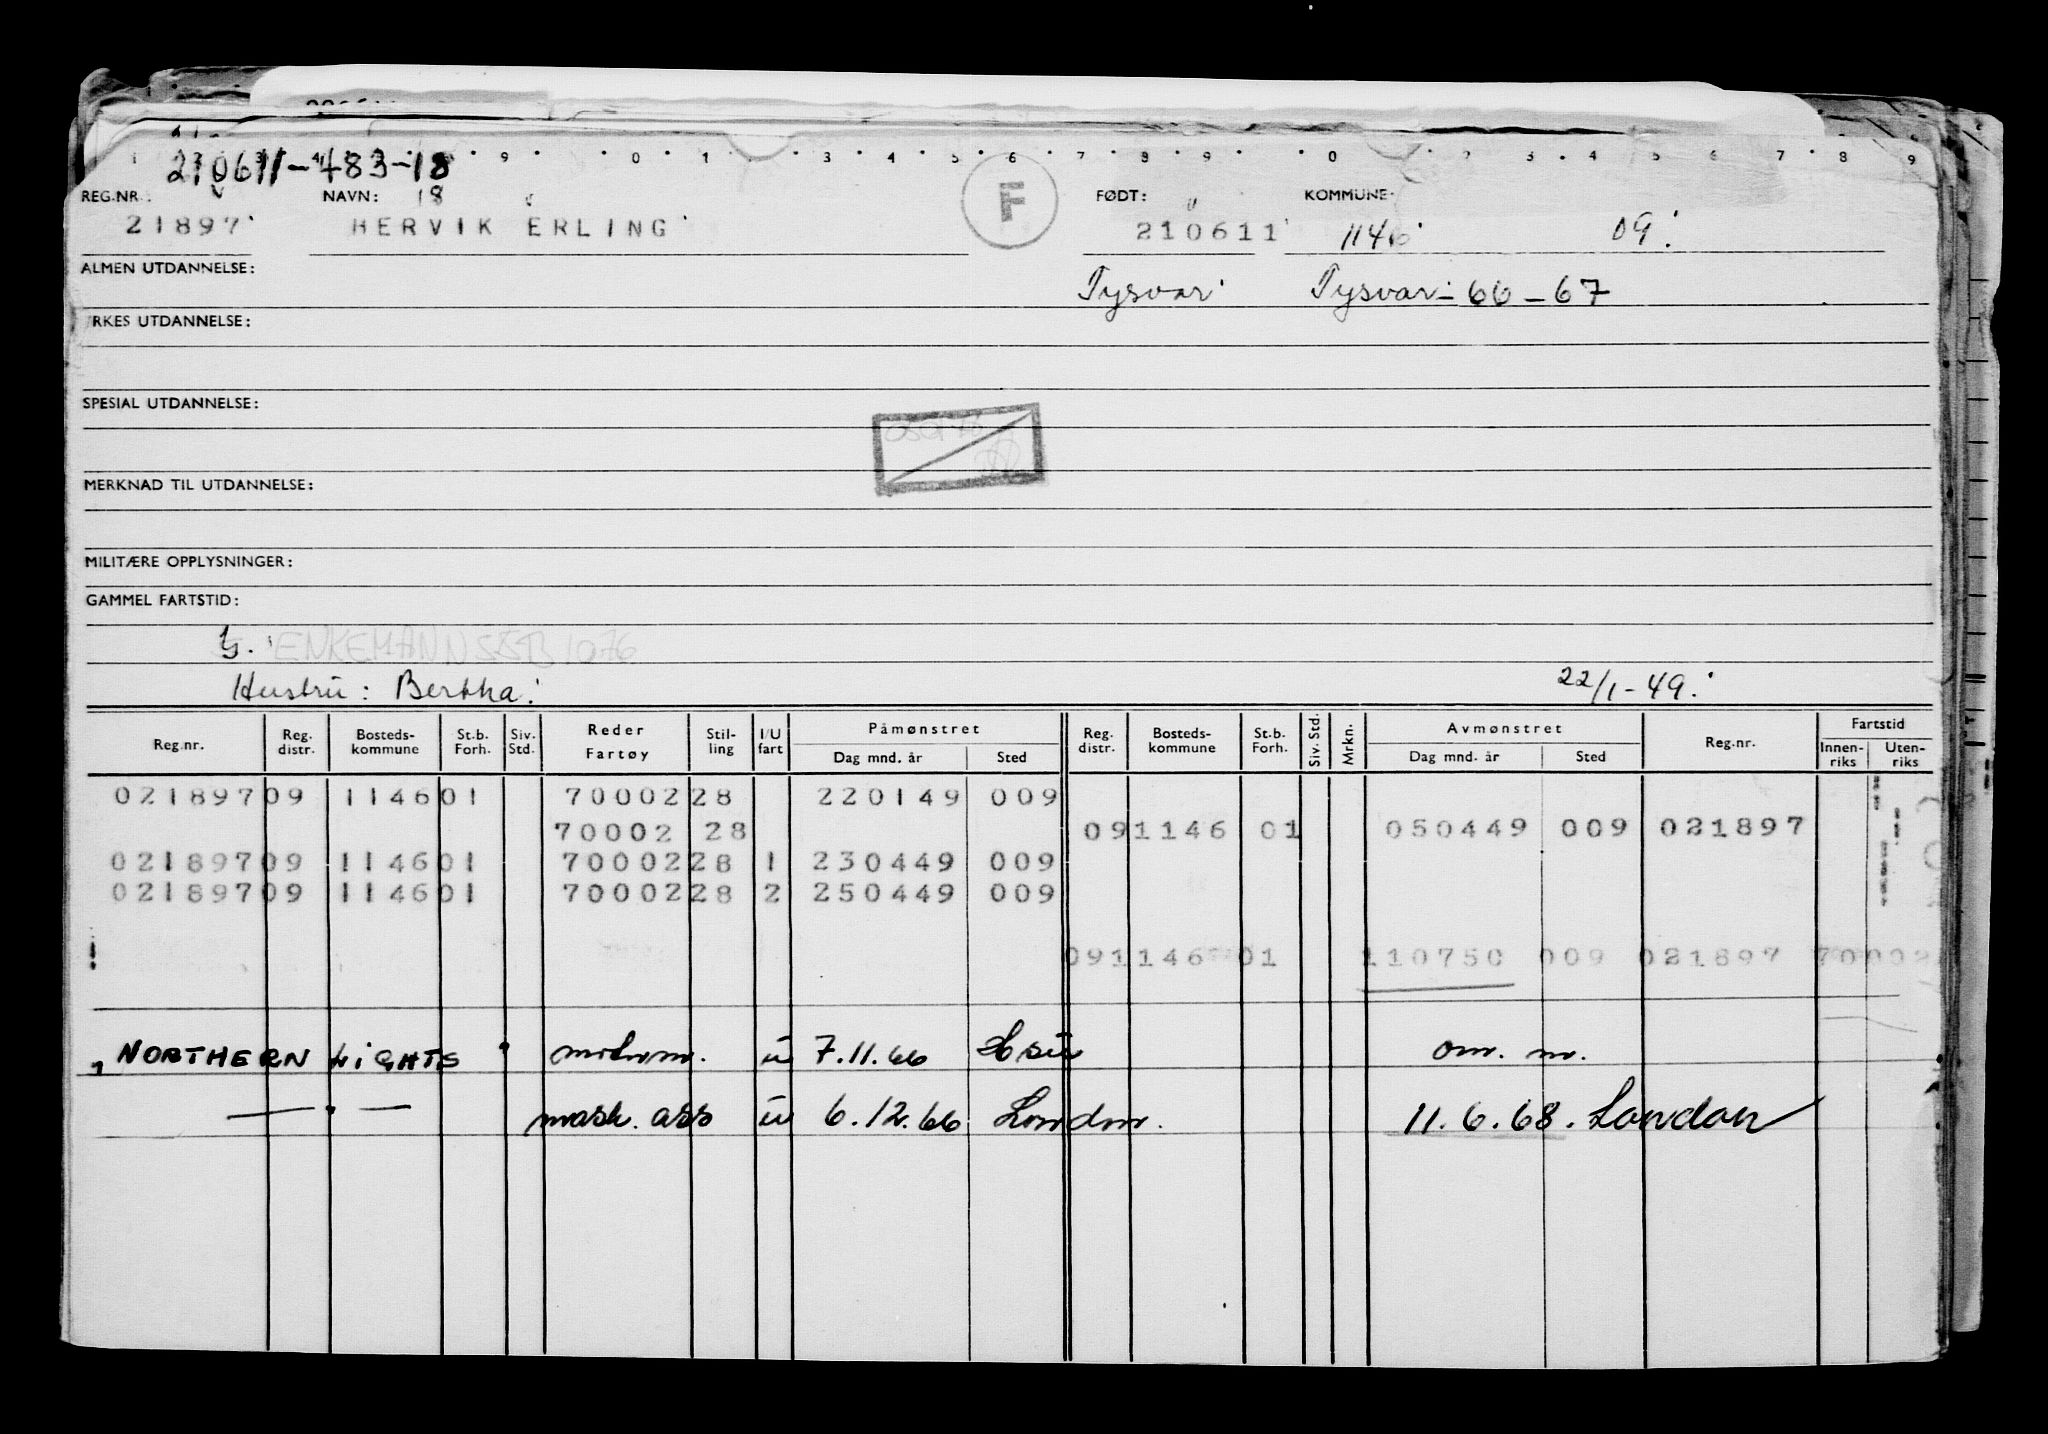 210611-483-18
REG.NR.: NAVN: 18 F FØDT: KOMMUNE:
21897 HERVIK ERLING 210611 1146 09.
ALMEN UTDANNELSE:
Tysvær Tysvær - 66 - 67
YRKES UTDANNELSE:
SPESIAL UTDANNELSE:
MERKNAD TIL UTDANNELSE:
MILITÆRE OPPLYSNINGER:
GAMMEL FARTSTID:
G. ENKEMANNSSTB 1076
Hustru: Bertha. 22/1-49.
Reg.nr. Reg. distr. Bosteds-kommune St.b. Forh. Siv. Std. Reder Fartøy Stil-ling I/U fart Påmønstret Dag mnd. år Sted Reg. distr. Bosteds-kommune St.b. Forh. Siv. Std. Mrkn. Avmønstret Dag mnd. år Sted Reg.nr. Fartstid Innen-riks Uten-riks
021897 09 1146 01 70002 28 220149 009
70002 28 09 1146 01 050449 009 021897
021897 09 1146 01 70002 28 1 230449 009
021897 09 1146 01 70002 28 2 250449 009
09 1146 01 110750 009 021897 70002
NORTHERN LIGHTS motorm. u 7.11.66 om. m.
— " — mask. ass u 6.12.66 London. 11.6.68. London